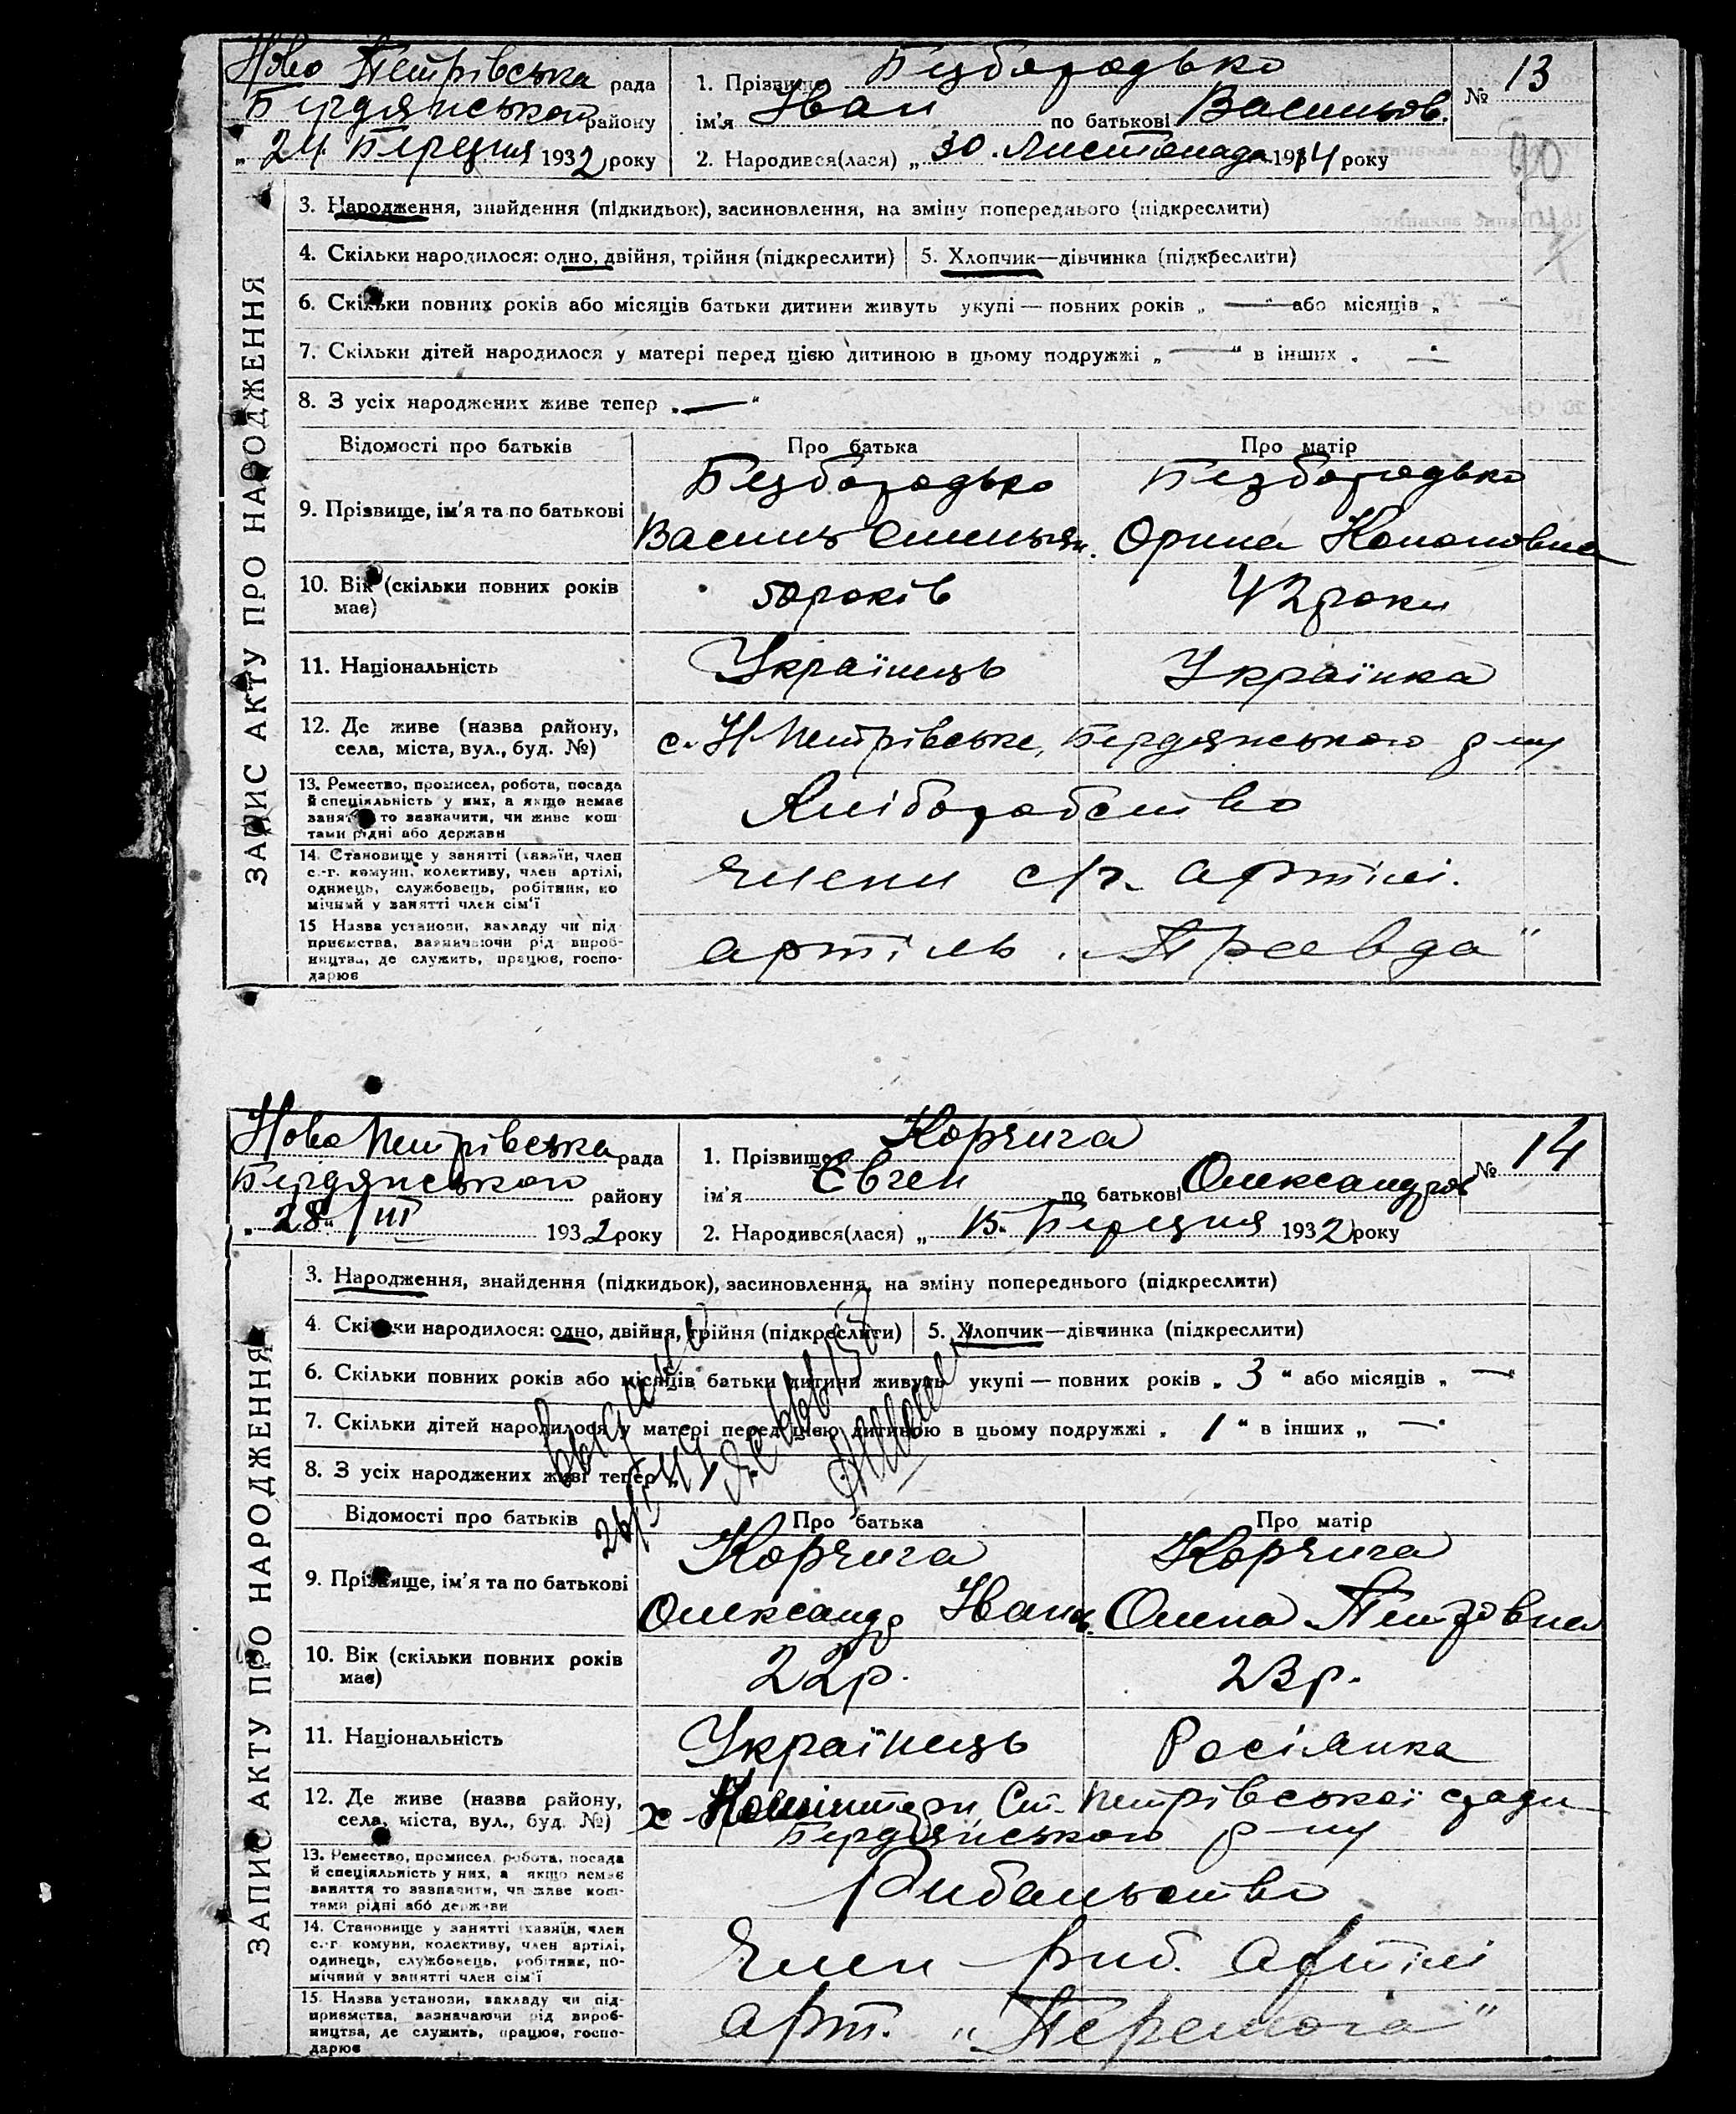 Ново Петрівська рада
Бердянського району
„ 24 Березня 1932 року
1. Прізвище Безбородько
ім'я Іван по батькові Васильов.
2. Народився(лася) „ 30 Листопада 1914 року
№ 13
90
ЗАПИС АКТУ ПРО НАРОДЖЕННЯ
3. Народження, знайдення (підкидьок), засиновлення, на зміну попереднього (підкреслити)
4. Скільки народилося: одно, двійня, трійня (підкреслити) 5. Хлопчик—дівчинка (підкреслити)
6. Скільки повних років або місяців батьки дитини живуть укупі — повних років „ — “ або місяців „ “
7. Скільки дітей народилося у матері перед цією дитиною в цьому подружжі „ — “ в інших „ —
8. З усіх народжених живе тепер „ — “
Відомості про батьків Про батька Про матір
9. Прізвище, ім'я та по батькові
Безбородько Безбородько
Василь Омельян. Орина Кононовна
10. Вік (скільки повних років
має)
50 років 42 роки
11. Національність Українець Українка
12. Де живе (назва району,
села, міста, вул., буд. №)
с. Н Петрівське, Бердянського р-ну
13. Ремество, промисел, робота, посада
й спеціяльність у них, а якщо немає
заняття то зазначити, чи живе кош
тами рідні або держави
Хліборобство
14. Становище у занятті (хазяїн, член
с.-г. комуни, колективу, член артілі,
одинець, службовець, робітник, по
мічний у занятті член сім'ї
Члени с/г. артілі.
15 Назва установи, закладу чи під
приємства, зазначаючи рід вироб-
ництва, де служить, працює, госпо-
дарює
артіль „Правда“
Ново Петрівська рада
Бердянського району
„ 28 “ III 1932 року
1. Прізвище Корчига
ім'я Євген по батькові Олександров
2. Народився(лася) „ 15. Березня 1932 року
№ 14
ЗАПИС АКТУ ПРО НАРОДЖЕННЯ
3. Народження, знайдення (підкидьок), засиновлення, на зміну попереднього (підкреслити)
4. Скільки народилося: одно, двійня, трійня (підкреслити) 5. Хлопчик—дівчинка (підкреслити)
6. Скільки повних років або місяців батьки дитини живуть укупі — повних років „ 3 “ або місяців „ — “
7. Скільки дітей народилося у матері перед цією дитиною в цьому подружжі „ 1 “ в інших „ —
8. З усіх народжених живі тепер
Відомості про батьків Про батька Про матір
9. Прізвище, ім'я та по батькові
Корчига Корчига
Олександр Іванов. Олена Петровна
10. Вік (скільки повних років
має)
22 р. 23 р.
11. Національність Українець Росіянка
12. Де живе (назва району,
села, міста, вул., буд. №)
х Ст. Петрівської сради
Бердянського р-ну
13. Ремество, промисел, робота, посада
й спеціяльність у них, а якщо немає
заняття то зазначити, чи живе кош-
тами рідні або держави
Рибальство
14. Становище у занятті (хазяїн, член
с.-г. комуни, колективу, член артілі,
одинець, службовець, робітник, по-
мічний у занятті член сім'ї
Член риб. артілі
15. Назва установи, закладу чи під-
приємства, зазначаючи рід вироб-
ництва, де служить, працює, госпо-
дарює
арт. „Перемога“